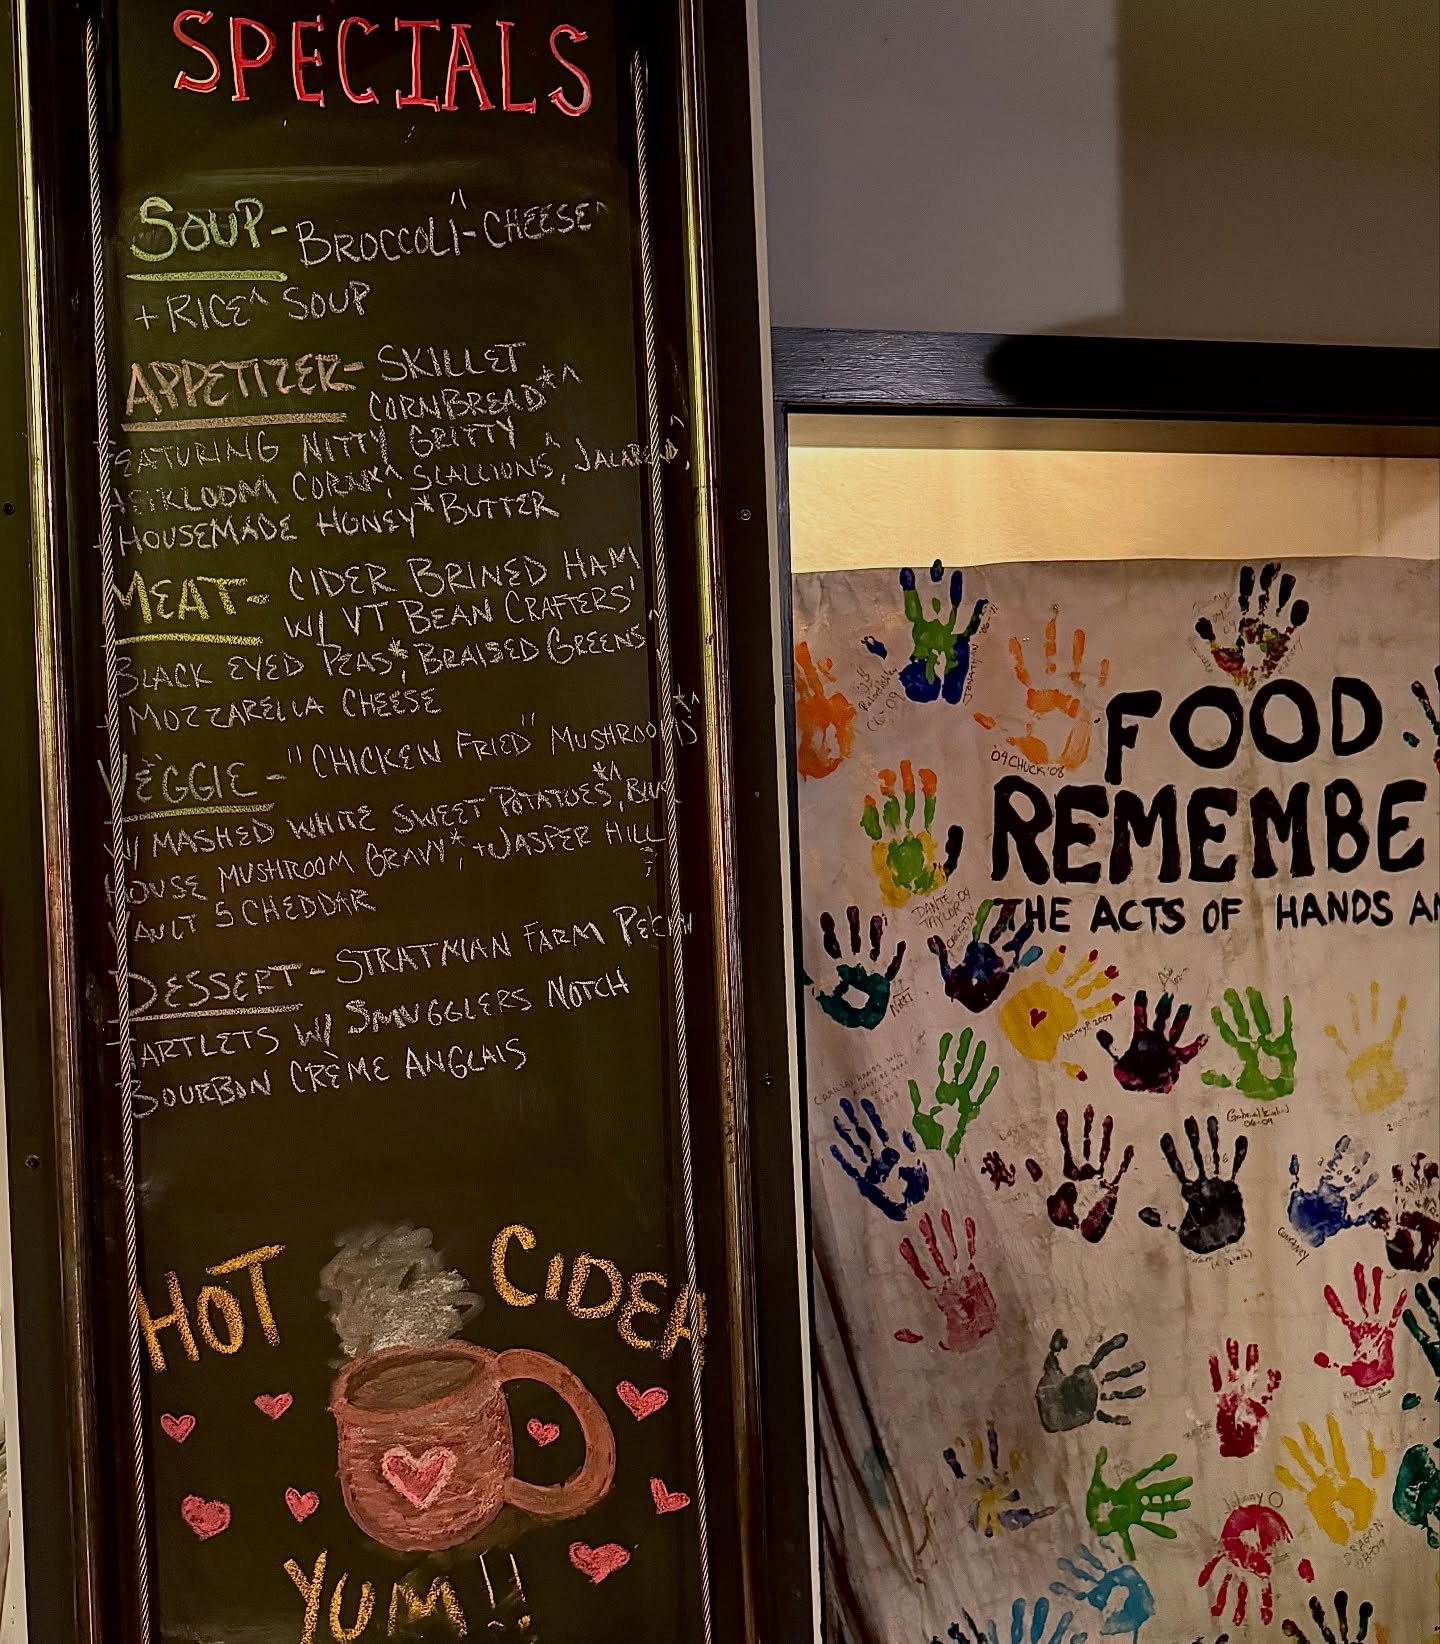 SPECIALS
SOUP- BROCCOLI"-CHEESE^
+ RICE^ SOUP
APPETIZER- SKILLET
CORNBREAD*^
FEATURING NITTY GRITTY
HEIRLOOM CORN*^, SCALLIONS^, JALAPEÑO^,
+ HOUSEMADE HONEY* BUTTER
MEAT- CIDER BRINED HAM
W/ VT BEAN CRAFTERS'
BLACK EYED PEAS*, BRAISED GREENS^
+ MOZZARELLA CHEESE
VEGGIE - "CHICKEN FRIED" MUSHROOMS*^
W/ MASHED WHITE SWEET POTATOES*^, BLUE
HOUSE MUSHROOM GRAVY*, + JASPER HILL
VAULT 5 CHEDDAR
DESSERT- STRATMAN FARM PECAN
TARTLETS W/ SMUGGLERS NOTCH
BOURBON CRÈME ANGLAIS
HOT CIDER
YUM!!
FOOD
REMEMBE
THE ACTS OF HANDS AN
JONATHAN
'09 CHUCK '08
DANTÉ
TAYLOR 09
Nancy P. 2007
06-09
Johnny O
DRAGON